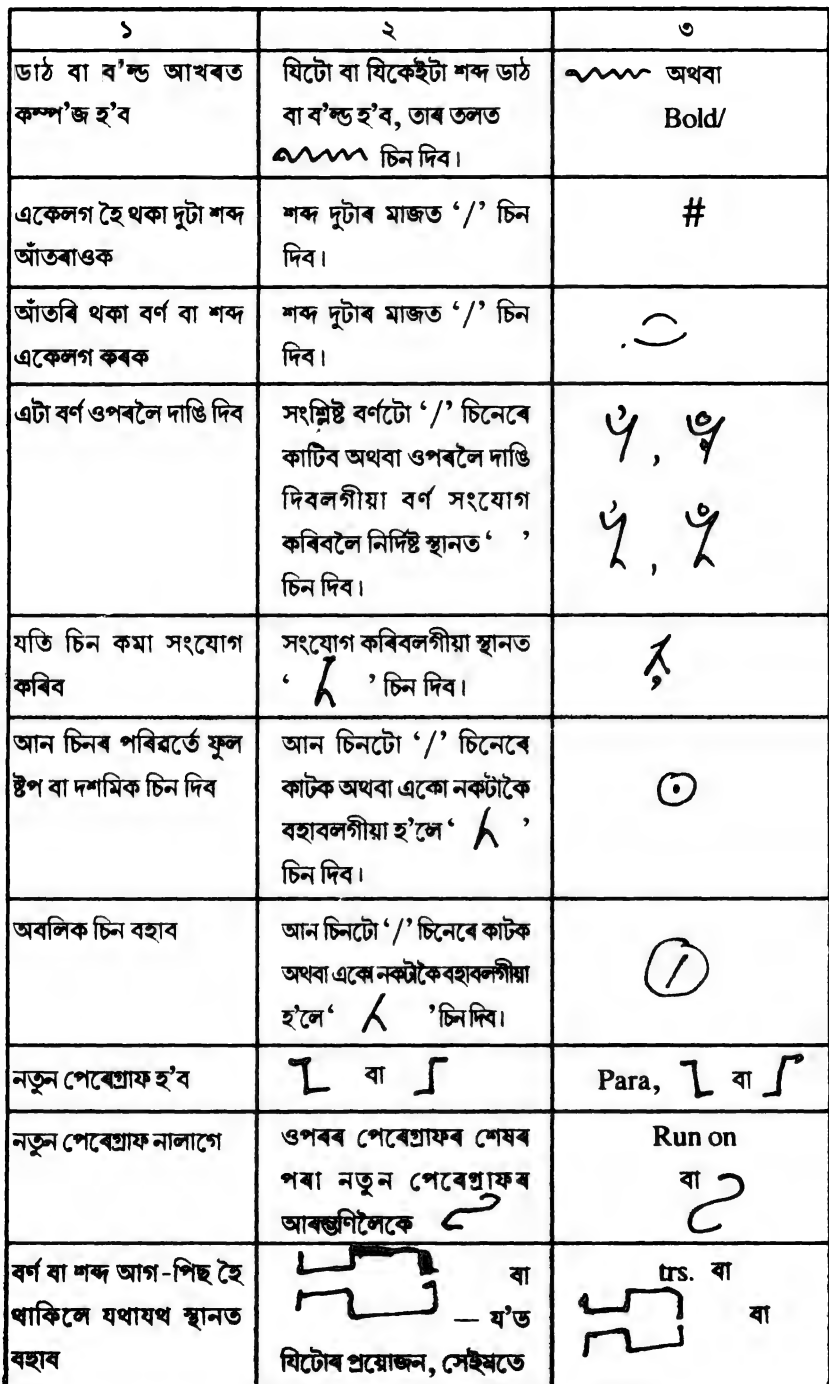 ১ ২ ৩
ডাঠ বা ব'ল্ড আখৰত
কম্প'জ হ'ব
যিটো বা যিকেইটা শব্দ ডাঠ
বা ব'ল্ড হ'ব, তাৰ তলত
চিন দিব।
অথবা
Bold/
একেলগ হৈ থকা দুটা শব্দ
আঁতৰাওক
শব্দ দুটাৰ মাজত ‘/’ চিন
দিব।
#
আঁতৰি থকা বৰ্ণ বা শব্দ
একেলগ কৰক
শব্দ দুটাৰ মাজত ‘/’ চিন
দিব।
এটা বৰ্ণ ওপৰলৈ দাঙি দিব
সংশ্লিষ্ট বৰ্ণটো ‘/’ চিনেৰে
কাটিব অথবা ওপৰলৈ দাঙি
দিবলগীয়া বৰ্ণ সংযোগ
কৰিবলৈ নিৰ্দিষ্ট স্থানত ‘ ’
চিন দিব।
যতি চিন কমা সংযোগ
কৰিব
সংযোগ কৰিবলগীয়া স্থানত
‘ ’ চিন দিব।
আন চিনৰ পৰিৱৰ্তে ফুল
ষ্টপ বা দশমিক চিন দিব
আন চিনটো ‘/’ চিনেৰে
কাটক অথবা একো নকটাকৈ
বহাবলগীয়া হ'লে ‘ ’
চিন দিব।
অবলিক চিন বহাব
আন চিনটো ‘/’ চিনেৰে কাটক
অথবা একো নকটাকৈ বহাবলগীয়া
হ'লে ‘ ’ চিন দিব।
/
নতুন পেৰেগ্ৰাফ হ'ব
বা
Para, বা
নতুন পেৰেগ্ৰাফ নালাগে
ওপৰৰ পেৰেগ্ৰাফৰ শেষৰ
পৰা নতুন পেৰেগ্ৰাফৰ
আৰম্ভণিলৈকে
Run on
বা
বৰ্ণ বা শব্দ আগ-পিছ হৈ
থাকিলে যথাযথ স্থানত
বহাব
বা
— য'ত
যিটোৰ প্ৰয়োজন, সেইমতে
trs. বা
বা